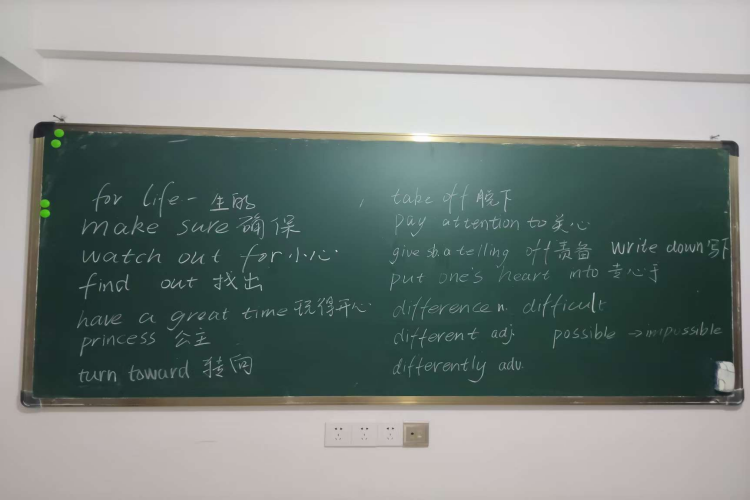 for life 一生的
make sure 确保
watch out for 小心
find out 找出
have a great time 玩得开心
princess 公主
turn toward 转向
take off 脱下
pay attention to 关心
give sb a telling off 责备 write down 写下
put one's heart into 走心于
difference n. difficult
different adj. possible → impossible
differently adv.